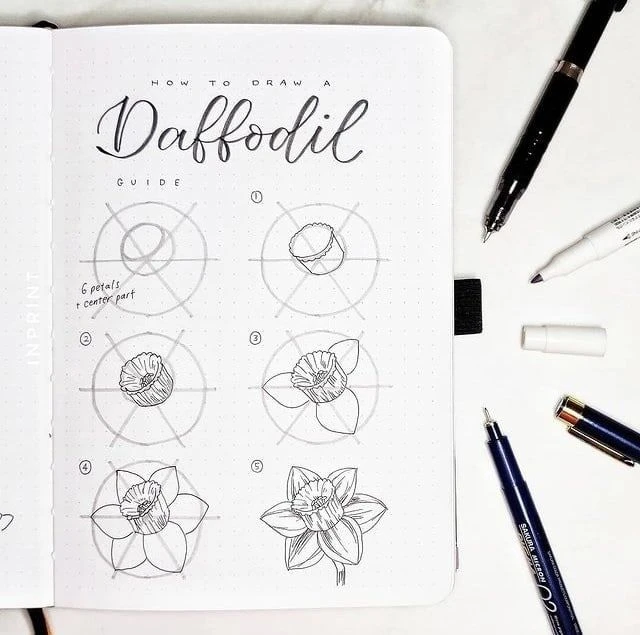 HOW TO DRAW A
Daffodil
GUIDE
6 petals
+ center part
1
2
3
4
5
INPRINT
SAKURA MICRON 02